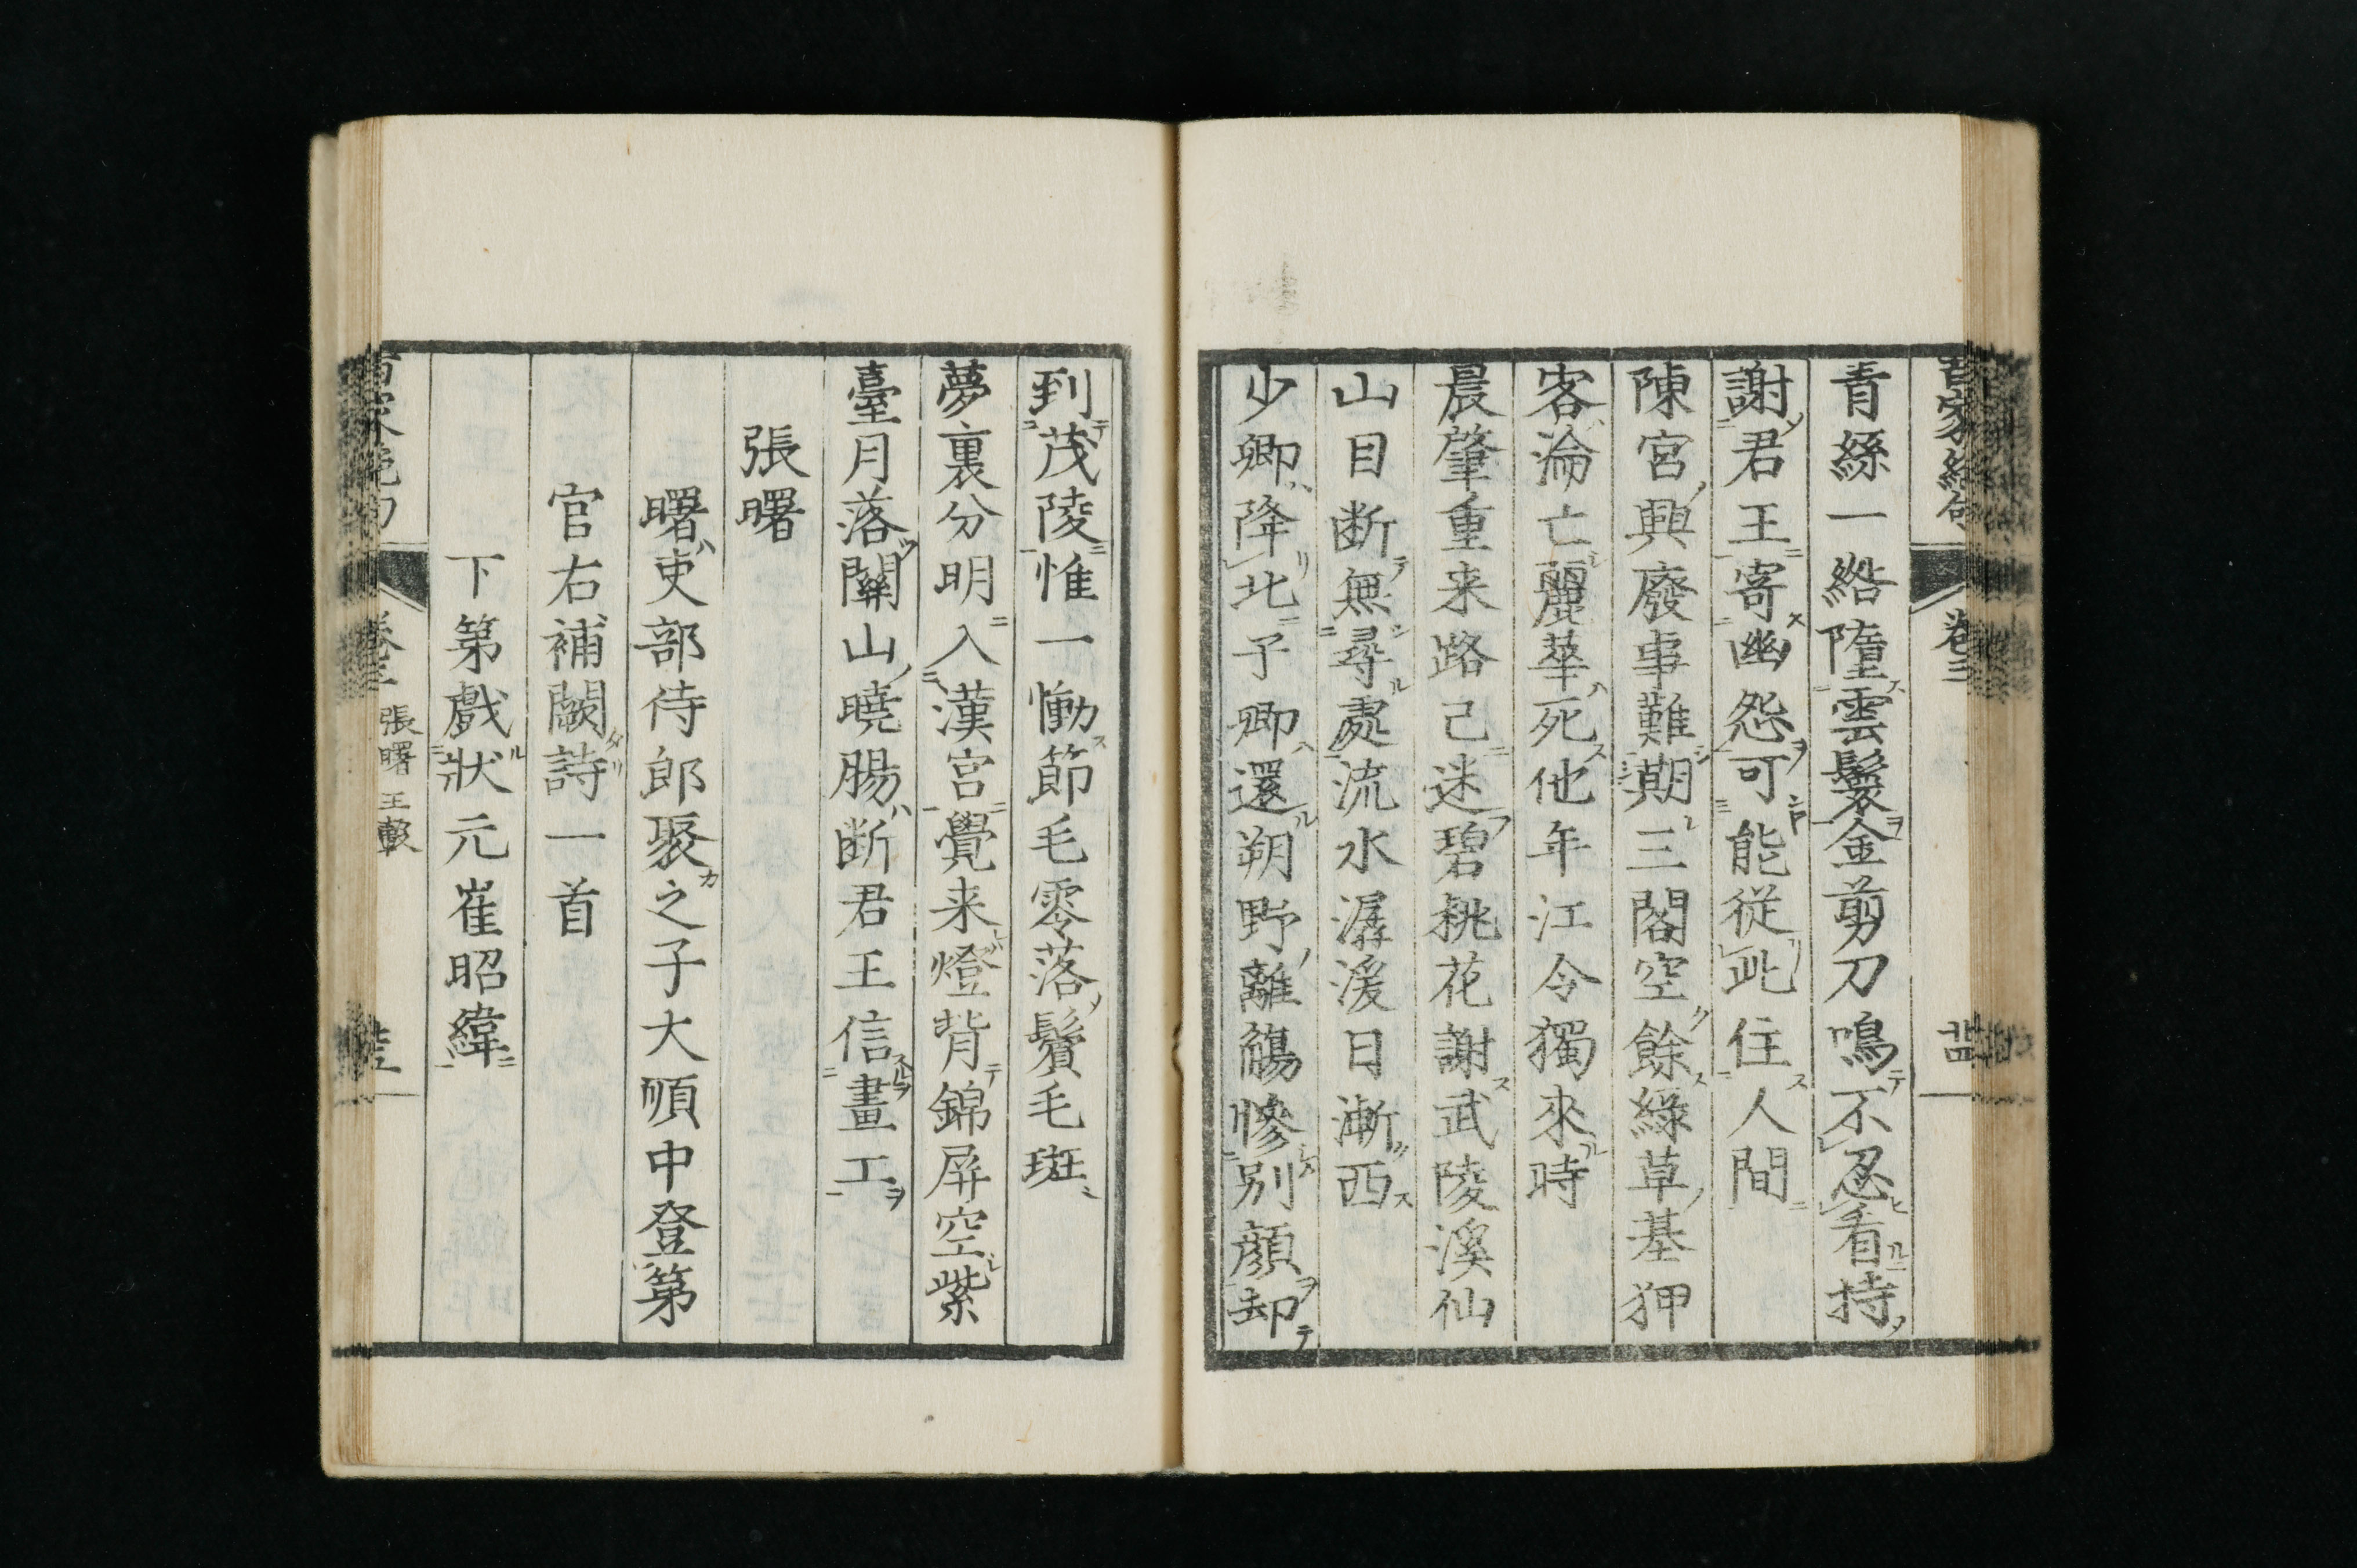 青絲一綹墮雲鬟金剪刀鳴不忍看持
謝君王寄幽怨可能從此住人間
陳宮興廢事難期三閣空餘綠草基狎
客淪亡麗華死他年江令獨來時
晨肇重来路已迷碧桃花謝武陵溪仙
山目断無尋處流水潺湲日漸西
少卿降北子卿還朔野離觴慘別顔却
到茂陵惟一慟節毛零落鬢毛斑
夢裏分明入漢宮覺来燈背錦屏空紫
臺月落關山曉腸断君王信畫工
張曙
曙吏部侍郎褧之子大順中登第
官右補闕詩一首
下第戲狀元崔昭緯
卷三
張曙 王轂